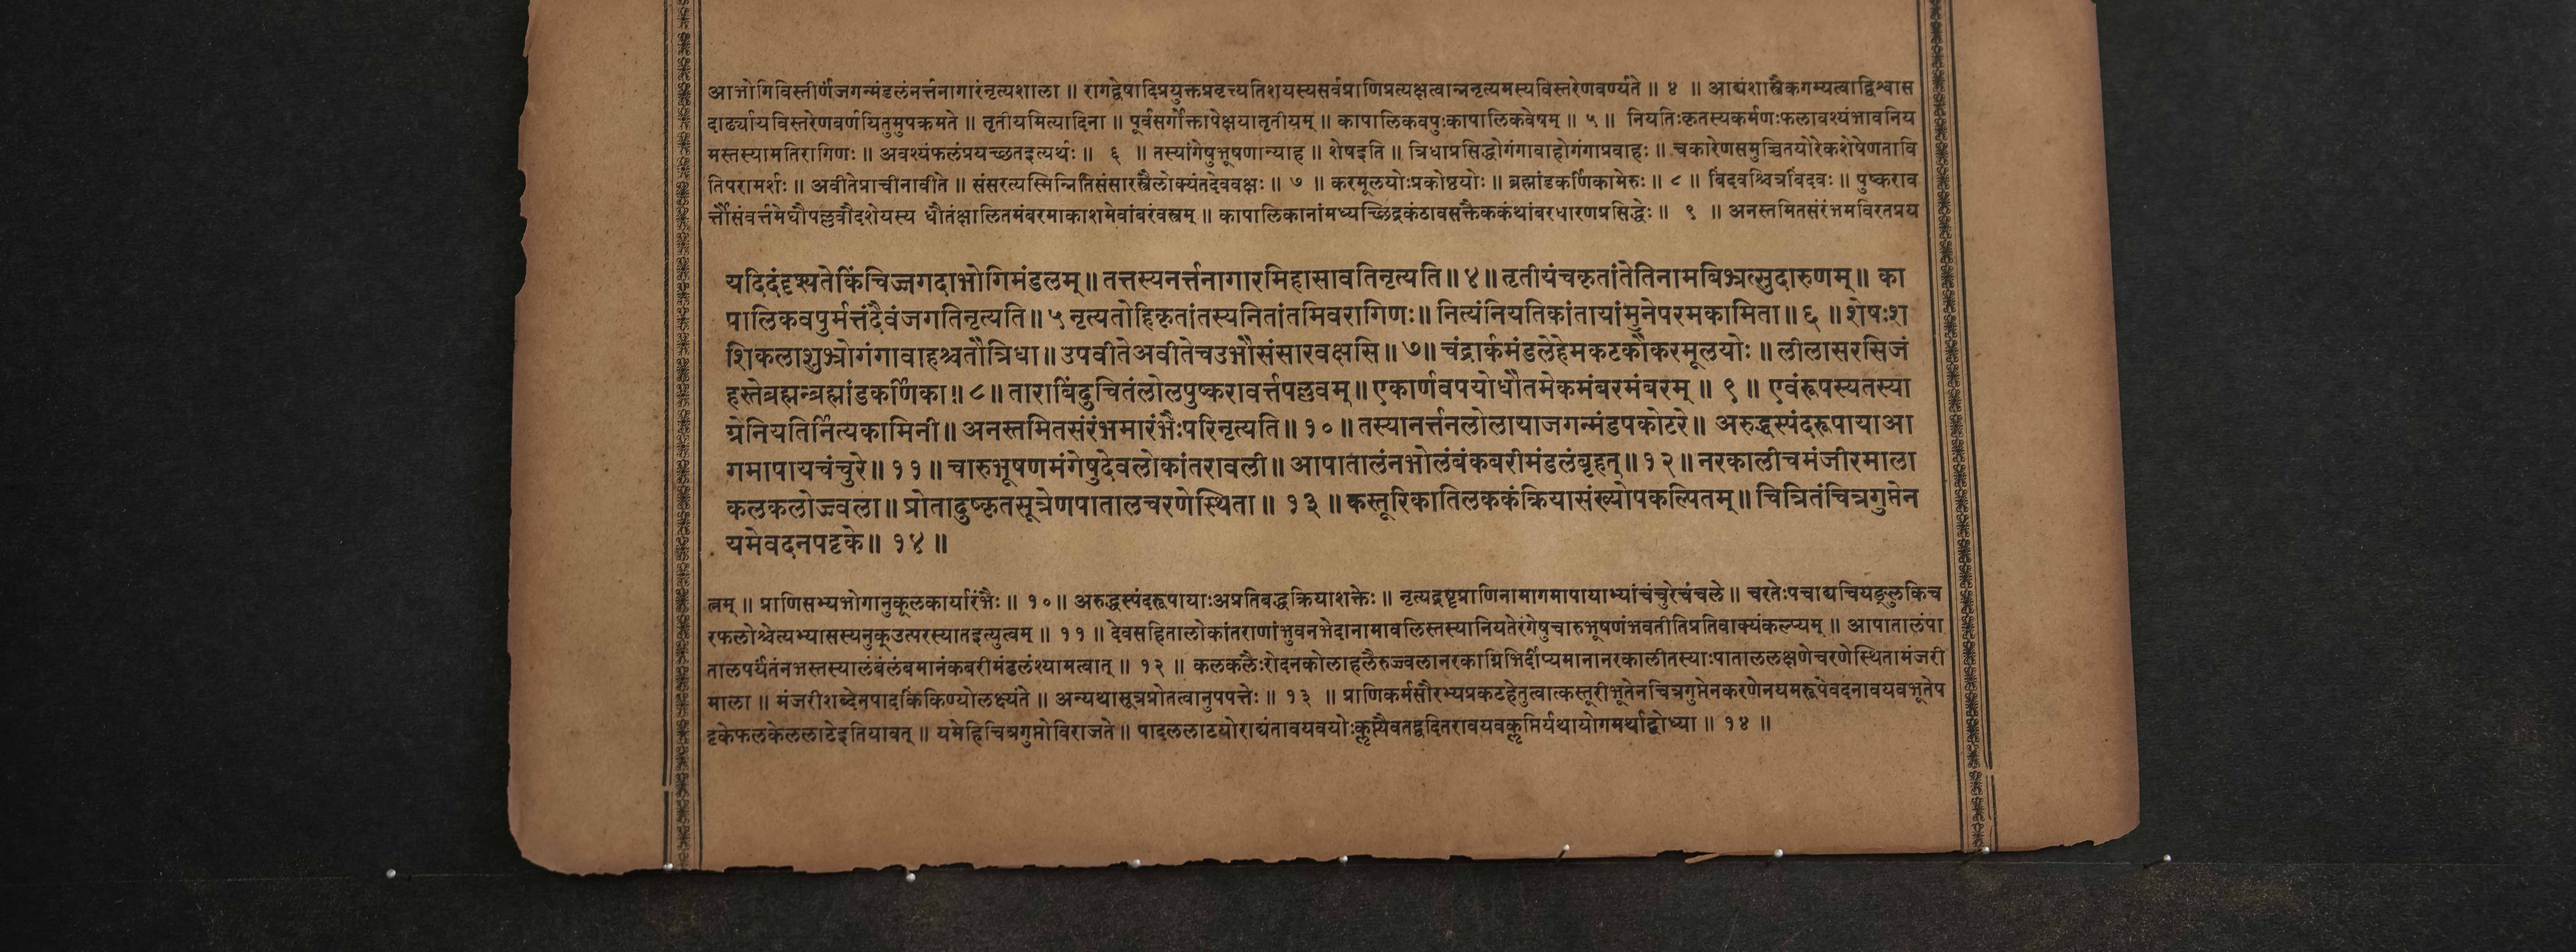 आभोगिविस्तीर्णंजगन्मंडलंनर्त्तनागारंनृत्यशाला ॥ रागद्वेषादिप्रयुक्तप्रवृत्त्यतिशयस्यसर्वप्राणिप्रत्यक्षत्वान्ननृत्यमस्यविस्तरेणवर्ण्यते ॥ ४ ॥ आद्यंशास्त्रैकगम्यत्वाद्विश्वास
दार्ढ्यायविस्तरेणवर्णयितुमुपक्रमते ॥ तृतीयमित्यादिना ॥ पूर्वसर्गोक्तापेक्षयातृतीयम् ॥ कापालिकवपुःकापालिकवेषम् ॥ ५ ॥ नियतिःकृतस्यकर्मणःफलावश्यंभावनिय
मस्तस्यामतिरागिणः ॥ अवश्यंफलंप्रयच्छतइत्यर्थः ॥ ६ ॥ तस्यांगेषुभूषणान्याह ॥ शेषइति ॥ त्रिधाप्रसिद्धोगंगावाहोगंगाप्रवाहः ॥ चकारेणसमुच्चितयोरेकशेषेणतावि
तिपरामर्शः ॥ अवीतेप्राचीनावीते ॥ संसरत्यस्मिन्नितिसंसारस्त्रैलोक्यंतदेववक्षः ॥ ७ ॥ करमूलयोःप्रकोष्ठयोः ॥ ब्रह्मांडकर्णिकामेरुः ॥ ८ ॥ बिंदवश्चित्रबिंदवः ॥ पुष्कराव
र्त्तौसंवर्त्तमेघौपल्लवौदशेयस्य धौतंक्षालितमंबरमाकाशमेवांबरंवस्त्रम् ॥ कापालिकानांमध्यच्छिद्रकंठावसक्तैककंथांबरधारणप्रसिद्धेः ॥ ९ ॥ अनस्तमितसंरंभमविरतप्रय
यदिदंदृश्यतेकिंचिज्जगदाभोगिमंडलम् ॥ तत्तस्यनर्त्तनागारमिहासावतिनृत्यति ॥ ४ ॥ तृतीयंचकृतांतेतिनामबिभ्रत्सुदारुणम् ॥ का
पालिकवपुर्मत्तंदैवंजगतिनृत्यति ॥ ५ नृत्यतोहिकृतांतस्यनितांतमिवरागिणः ॥ नित्यंनियतिकांतायांमुनेपरमकामिता ॥ ६ ॥ शेषःश
शिकलाशुभ्रोगंगावाहश्चतौत्रिधा ॥ उपवीतेअवीतेचउभौसंसारवक्षसि ॥ ७ ॥ चंद्रार्कमंडलेहेमकटकौकरमूलयोः ॥ लीलासरसिजं
हस्तेब्रह्मन्ब्रह्मांडकर्णिका ॥ ८ ॥ ताराबिंदुचितंलोलपुष्करावर्त्तपल्लवम् ॥ एकार्णवपयोधौतमेकमंबरमंबरम् ॥ ९ ॥ एवंरूपस्यतस्या
ग्रेनियतिर्नित्यकामिनी ॥ अनस्तमितसंरंभमारंभैःपरिनृत्यति ॥ १० ॥ तस्यानर्त्तनलोलायाजगन्मंडपकोटरे ॥ अरुद्धस्पंदरूपायाआ
गमापायचंचुरे ॥ ११ ॥ चारुभूषणमंगेषुदेवलोकांतरावली ॥ आपातालंनभोलंबंकबरीमंडलंबृहत् ॥ १२ ॥ नरकालीचमंजीरमाला
कलकलोज्वला ॥ प्रोतादुष्कृतसूत्रेणपातालचरणेस्थिता ॥ १३ ॥ कस्तूरिकातिलककंक्रियासंख्योपकल्पितम् ॥ चित्रितंचित्रगुप्तेन
यमेवदनपट्टके ॥ १४ ॥
त्नम् ॥ प्राणिसभ्यभोगानुकूलकार्यारंभैः ॥ १० ॥ अरुद्धस्पंदरूपायाःअप्रतिबद्धक्रियाशक्तेः ॥ नृत्यद्रष्टृप्राणिनामागमापायाभ्यांचंचुरेचंचले ॥ चरतेःपचाद्यचियङ्लुकिच
रफलोश्चेत्यभ्यासस्यनुकूउत्परस्यातइत्युत्वम् ॥ ११ ॥ देवसहितालोकांतराणांभुवनभेदानामावलिस्तस्यानियतेरंगेषुचारुभूषणंभवतीतिप्रतिवाक्यंकल्प्यम् ॥ आपातालंपा
तालपर्यंतंनभस्तस्यालंबंलंबमानंकबरीमंडलंश्यामत्वात् ॥ १२ ॥ कलकलैःरोदनकोलाहलैरुज्ज्वलानरकाग्निभिर्दीप्यमानानरकालीतस्याःपाताललक्षणेचरणेस्थितामंजरी
माला ॥ मंजरीशब्देनपादकिंकिण्योलक्ष्यंते ॥ अन्यथासूत्रप्रोतत्वानुपपत्तेः ॥ १३ ॥ प्राणिकर्मसौरभ्यप्रकटहेतुत्वात्कस्तूरीभूतेनचित्रगुप्तेनकरणेनयमरूपेवदनावयवभूतेप
ट्टकेफलकेललाटेइतियावत् ॥ यमेहिचित्रगुप्तोविराजते ॥ पादललाटयोराद्यंतावयवयोःकॢप्त्यैवतद्वदितरावयवकॢप्तिर्यथायोगमर्थाद्बोध्या ॥ १४ ॥